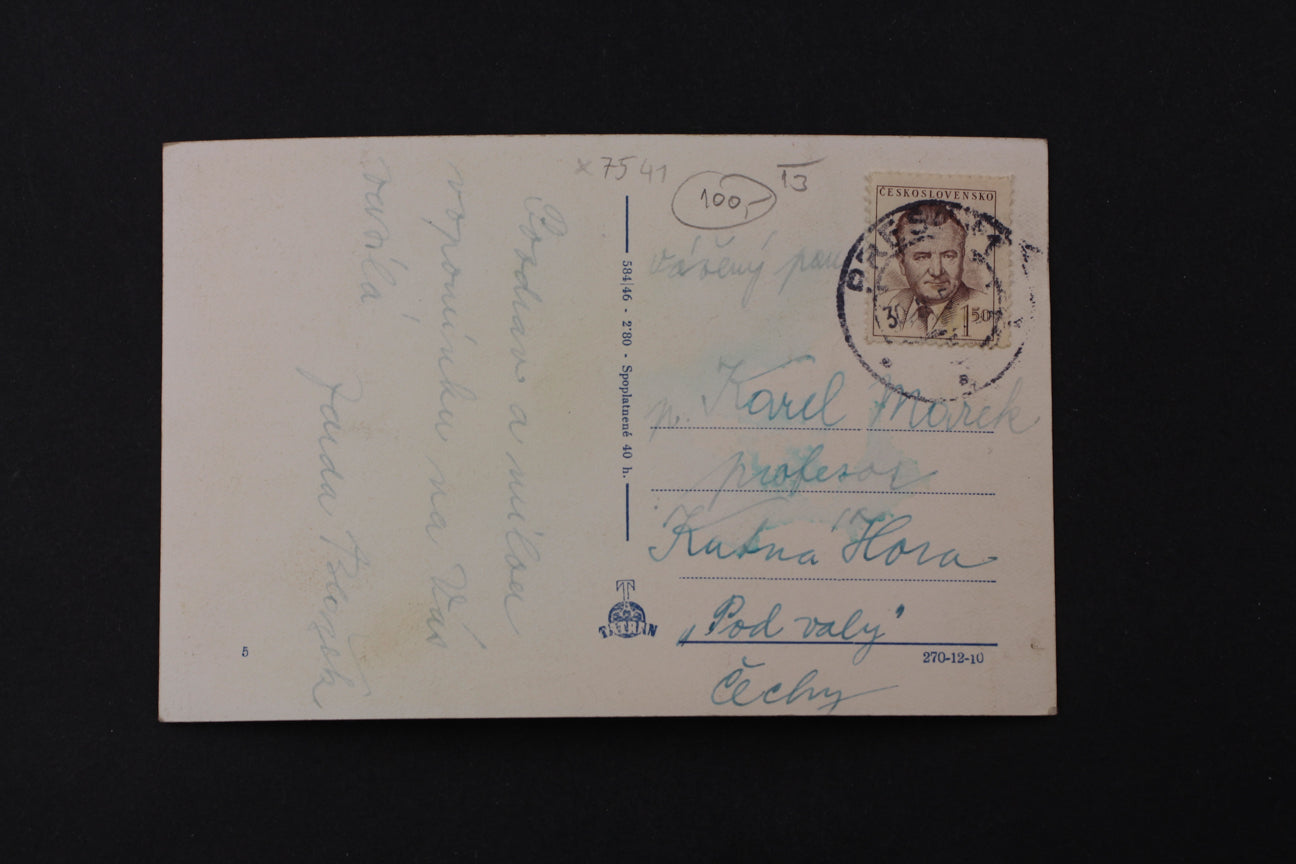 x 7541
100,-
13
ČESKOSLOVENSKO
1 50
30
Vážený pan
p. Karel Marek
profesor
Kutná Hora
„Pod valy“
Čechy
Pozdrav a milou
vzpomínku na Vás
Janda
584/46 - 2'80 - Spoplatnené 40 h.
TATRAN
5
270-12-10